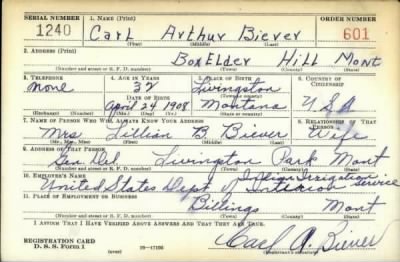 SERIAL NUMBER 1. NAME (Print) ORDER NUMBER
1240 Carl Arthur Biever 601
(First) (Middle) (Last)
2. ADDRESS (Print)
BoxElder Hill Mont
(Number and street or R. F. D. number) (Town) (County) (State)
3. TELEPHONE 4. AGE IN YEARS 5. PLACE OF BIRTH 6. COUNTRY OF CITIZENSHIP
None 32 Livingston
DATE OF BIRTH (Town or county)
April 24 1908 Montana U S A
(Exchange) (Number) (Mo.) (Day) (Yr.) (State or country)
7. NAME OF PERSON WHO WILL ALWAYS KNOW YOUR ADDRESS 8. RELATIONSHIP OF THAT PERSON
Mrs Lillian B Biever Wife
(Mr., Mrs., Miss) (First) (Middle) (Last)
9. ADDRESS OF THAT PERSON
Gen Del Livingston Park Mont
(Number and street or R. F. D. number) (Town) (County) (State)
10. EMPLOYER'S NAME Indian Irrigation
United States Dept of Interior Service
11. PLACE OF EMPLOYMENT OR BUSINESS
Billings Mont
(Number and street or R. F. D. number) (Town) (County) (State)
I AFFIRM THAT I HAVE VERIFIED ABOVE ANSWERS AND THAT THEY ARE TRUE.
REGISTRATION CARD
D. S. S. Form 1 Carl A. Biever